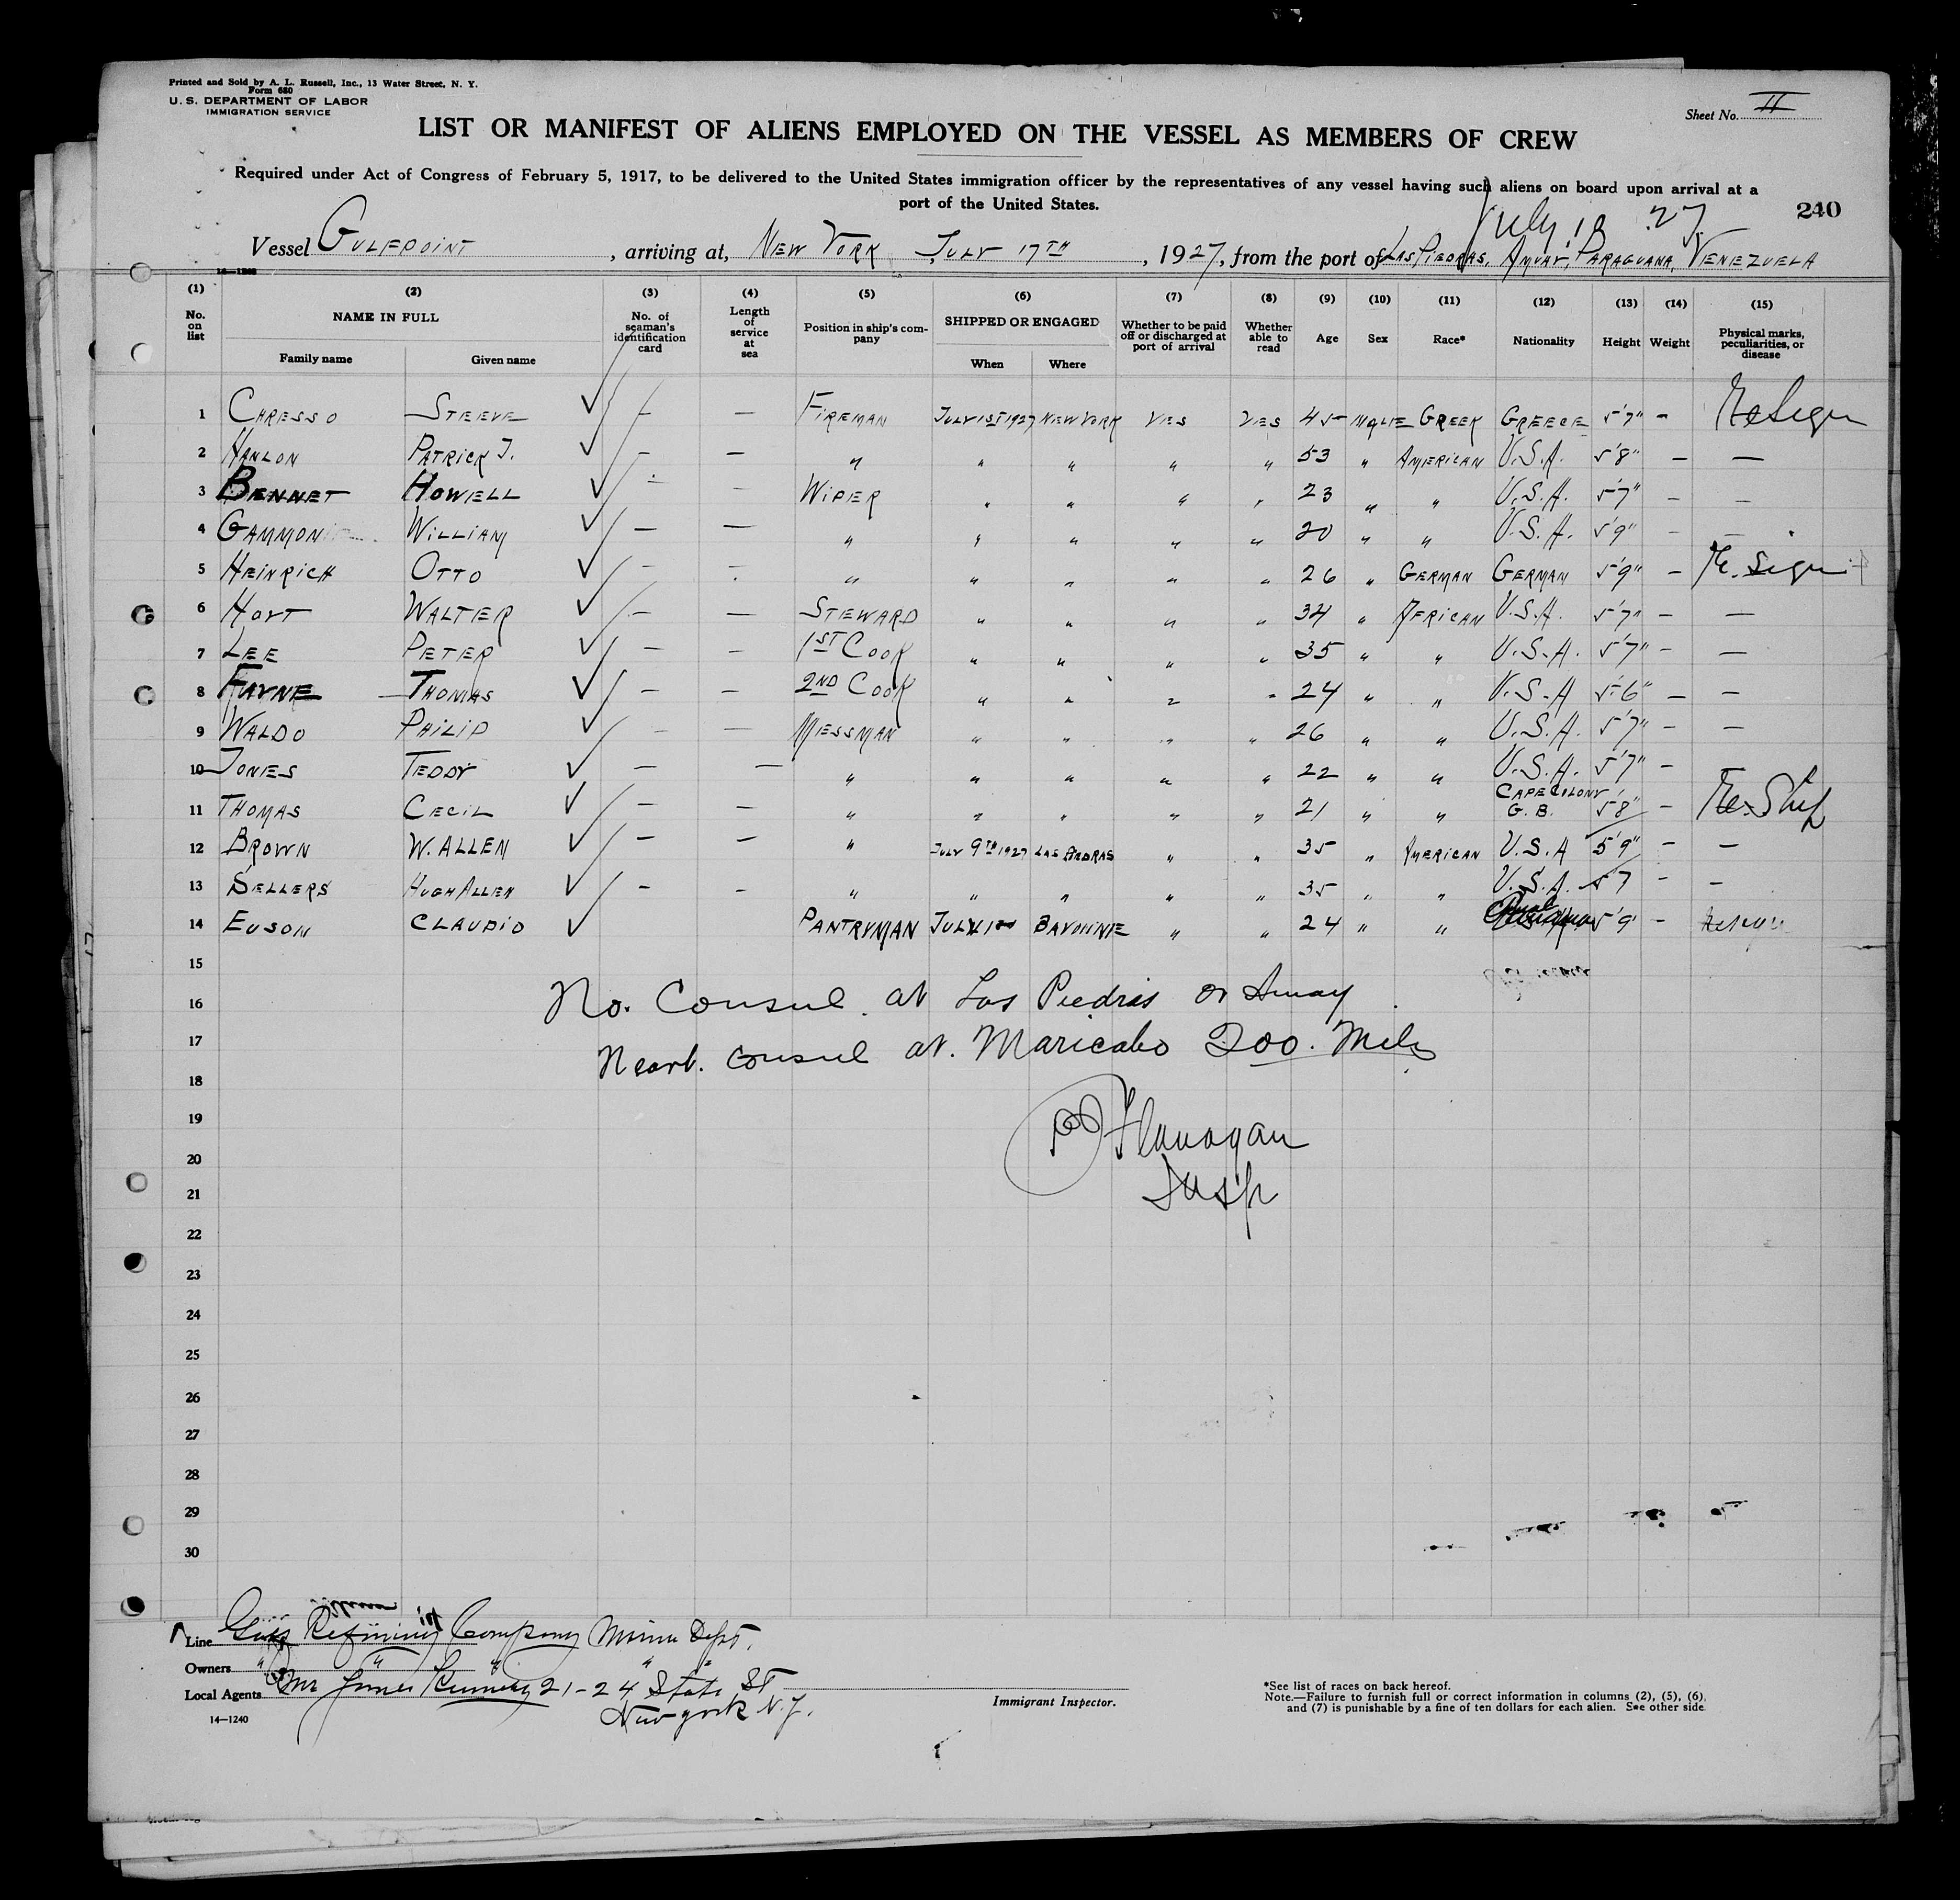 Printed and Sold by A. L. Russell, Inc., 13 Water Street, N. Y.
Form 680
U. S. DEPARTMENT OF LABOR
IMMIGRATION SERVICE
Sheet No. II
LIST OR MANIFEST OF ALIENS EMPLOYED ON THE VESSEL AS MEMBERS OF CREW
Required under Act of Congress of February 5, 1917, to be delivered to the United States immigration officer by the representatives of any vessel having such aliens on board upon arrival at a
port of the United States.
240
July 18 27
Vessel GULFPOINT, arriving at, NEW YORK, JULY 17TH, 1927, from the port of LAS PIEDRAS, AMUAY, PARAGUANA, VENEZUELA
14—1240
(1) (2) (3) (4) (5) (6) (7) (8) (9) (10) (11) (12) (13) (14) (15)
No. on list NAME IN FULL Family name Given name No. of seaman's identification card Length of service at sea Position in ship's company SHIPPED OR ENGAGED When Where Whether to be paid off or discharged at port of arrival Whether able to read Age Sex Race* Nationality Height Weight Physical marks, peculiarities, or disease
1 CHRESSO STEEVE ✓ — — FIREMAN JULY 1ST 1927 NEW YORK YES YES 45 MALE GREEK GREECE 5'7" —
2 HANLON PATRICK J. ✓ — — " " " " " 53 " AMERICAN U.S.A. 5'8" — —
3 BENNET HOWELL ✓ — — WIPER " " " " 23 " " U.S.A. 5'7" — —
4 GAMMON WILLIAM ✓ — — " " " " " 20 " " U.S.A. 5'9" — —
5 HEINRICH OTTO ✓ — — " " " " " 26 " GERMAN GERMAN 5'9" —
6 HOYT WALTER ✓ — — STEWARD " " " " 34 " AFRICAN U.S.A. 5'7" — —
7 LEE PETER ✓ — — 1ST COOK " " " " 35 " " U.S.A. 5'7" — —
8 FAYNE THOMAS ✓ — — 2ND COOK " " " " 24 " " U.S.A 5'6" — —
9 WALDO PHILIP ✓ — — MESSMAN " " " " 26 " " U.S.A. 5'7" — —
10 JONES TEDDY ✓ — — " " " " " 22 " " U.S.A. 5'7" —
11 THOMAS CECIL ✓ — — " " " " " 21 " " CAPE COLONY G.B. 5'8" — Re. Ship
12 BROWN W. ALLEN ✓ — — " JULY 9TH 1927 LAS PIEDRAS " " 35 " AMERICAN U.S.A 5'9" — —
13 SELLERS HUGH ALLEN ✓ — — " " " " " 35 " " U.S.A. 5'7 — —
14 EUSON CLAUDIO ✓ PANTRYMAN JULY 1 BAYONNE " " 24 " " 5'9" —
15
16
17
18
19
20
21
22
23
24
25
26
27
28
29
30
No. Consul at Las Piedras or Amay
Nearb. consul at. Maricabo 200. Miles
Flanagan
Insp
Line Gulf Refining Company Marine Dept.
Owners " " " " "
Local Agents Mr James Kennedy 21-24 State St
New york N.Y.
14—1240
Immigrant Inspector.
*See list of races on back hereof.
Note.—Failure to furnish full or correct information in columns (2), (5), (6),
and (7) is punishable by a fine of ten dollars for each alien. See other side